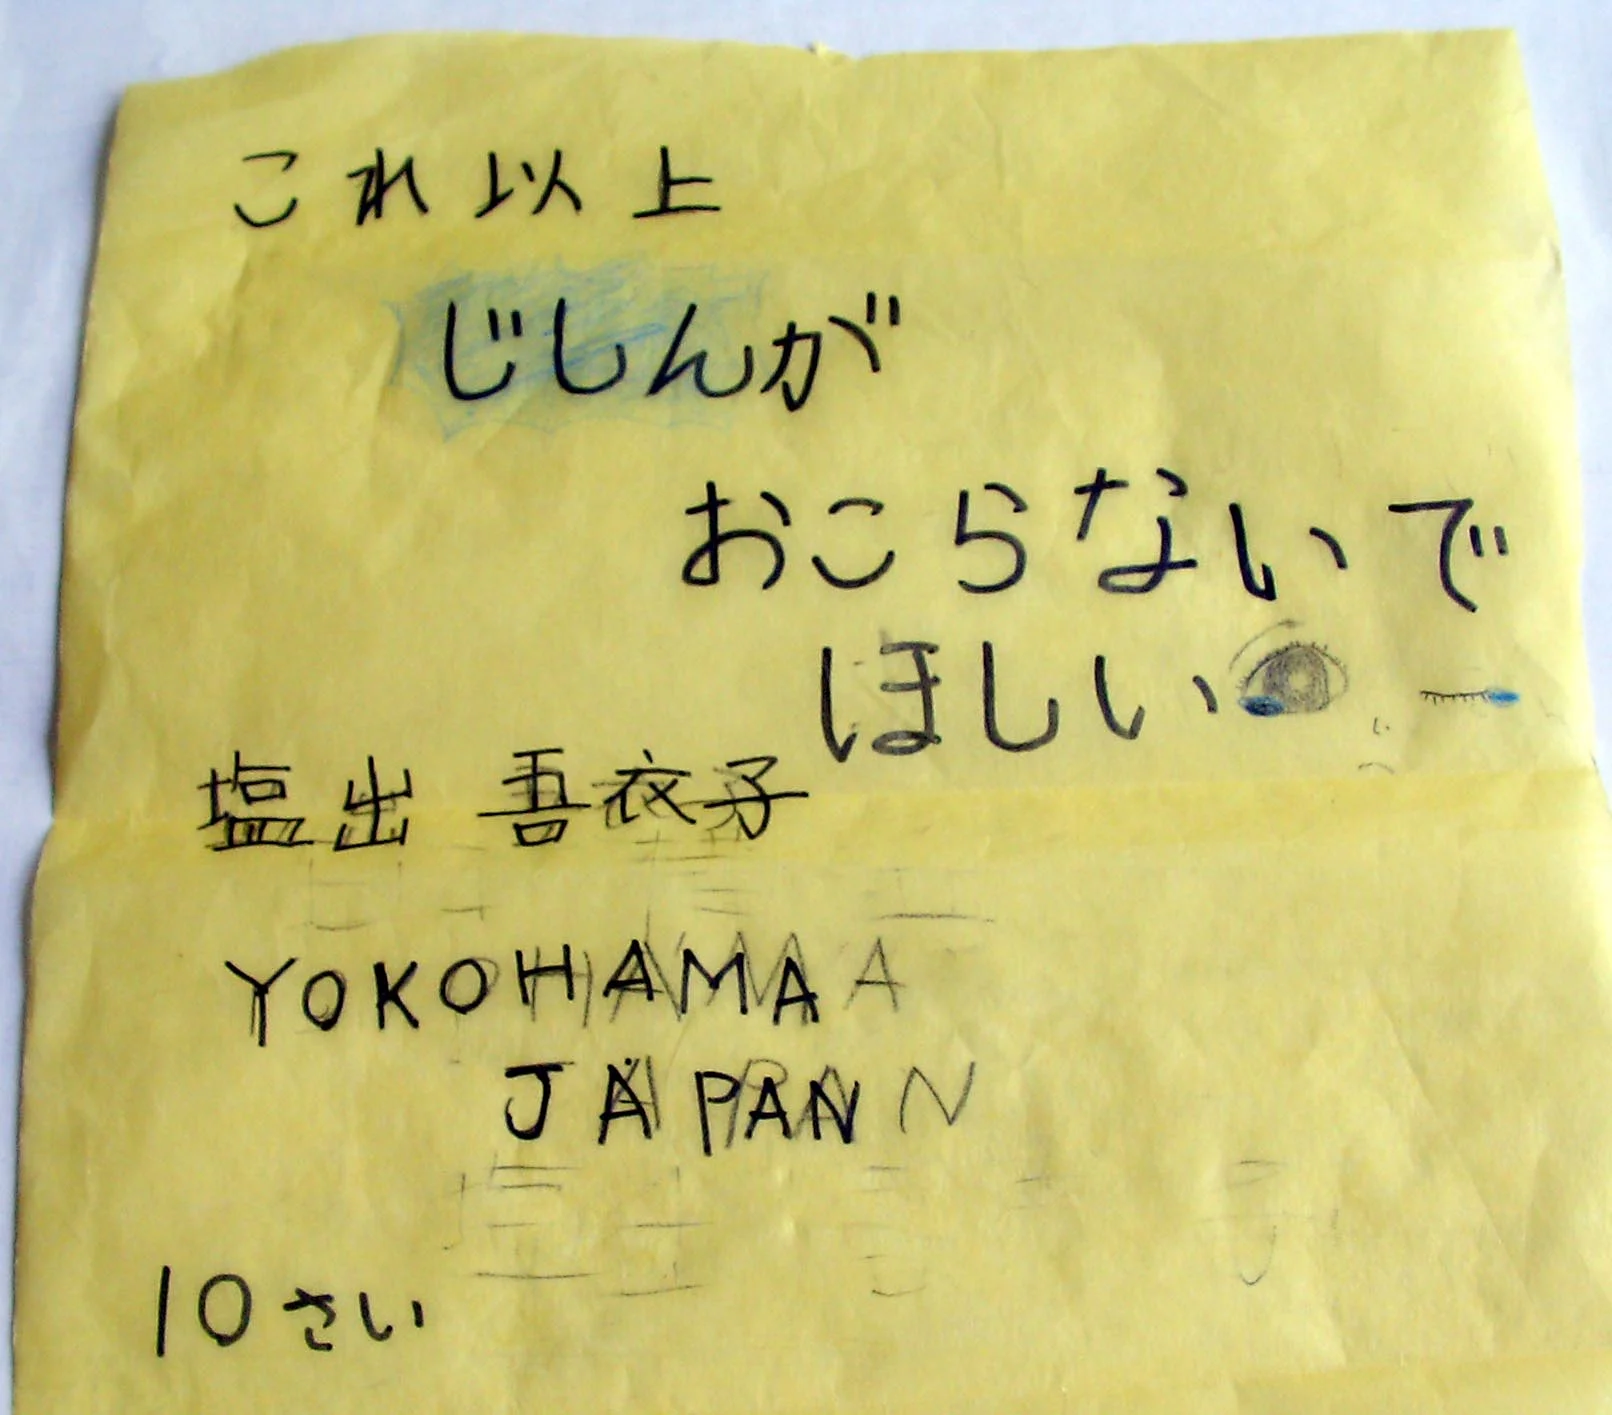 これ以上
じしんが
おこらないで
ほしい
塩出 吾衣子
YOKOHAMA
JAPAN
10さい